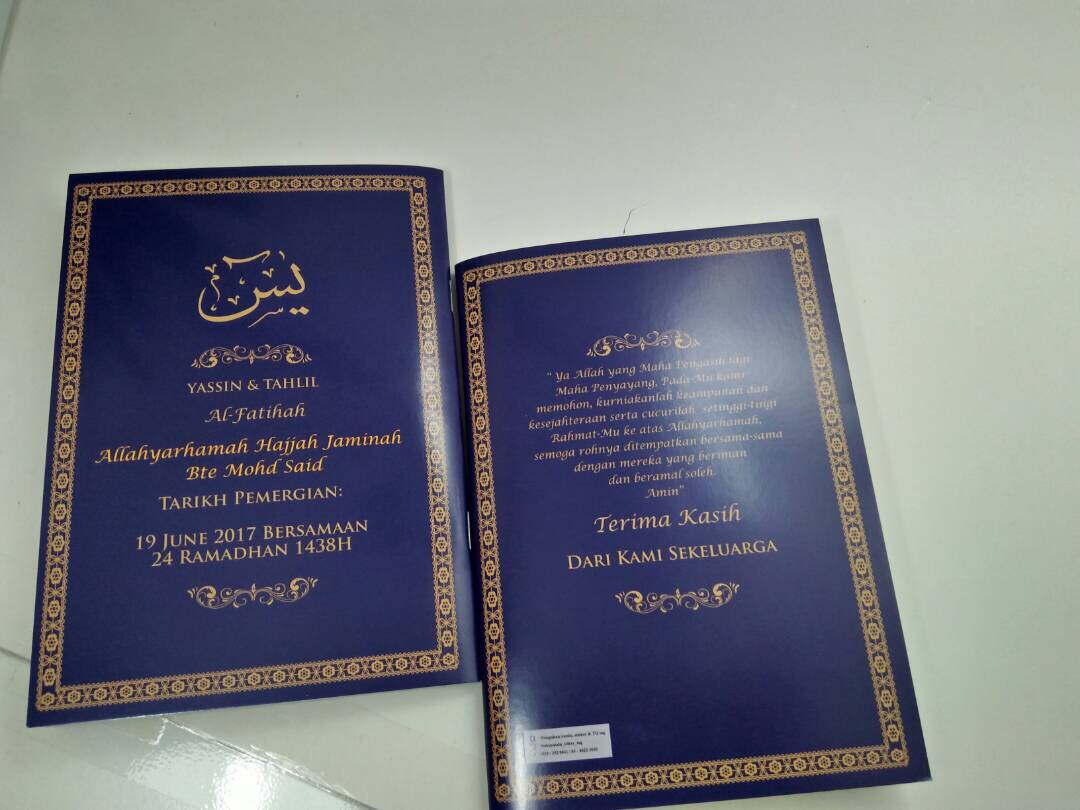 يس
YASSIN & TAHLIL
Al-Fatihah
Allahyarhamah Hajjah Jaminah
Bte Mohd Said
TARIKH PEMERGIAN:
19 JUNE 2017 BERSAMAAN
24 RAMADHAN 1438H
" Ya Allah yang Maha Pengasih lagi
Maha Penyayang, Pada-Mu kami
memohon, kurniakanlah keampunan dan
kesejahteraan serta cucurilah setinggi-tingi
Rahmat-Mu ke atas Allahyarhamah,
semoga rohnya ditempatkan bersama-sama
dengan mereka yang beriman
dan beramal soleh.
Amin"
Terima Kasih
DARI KAMI SEKELUARGA